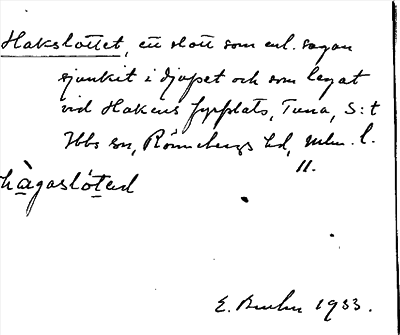 Hakslottet, ett slott som enl. sagan
sjunkit i djupet och som legat
vid Hakens fyrplats, Tuna, S:t
Ibbs sn, Rönnebergs hd, Mlm. l.
11.
hàgaslótəd
E. 1933.